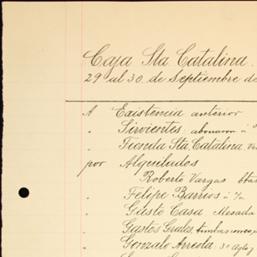 Caja Sta Catalina.
29 al 30 de Septiembre de
A Existencia anterior
" Sirvientes, abonaron á
" Tienda Sta Catalina
por Alquitulos
Roberto Vargas
" Felipe Barrios á
" Gasto Casa Mesada
" Gastos Grales.
" Gonzalo Arreola